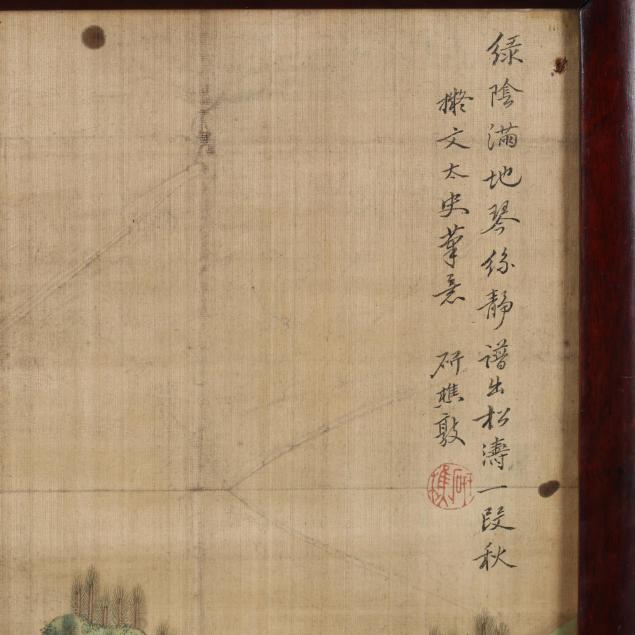 綠陰滿地琴絲靜譜出松濤一段秋
擬文太史筆意 研樵敦
研樵